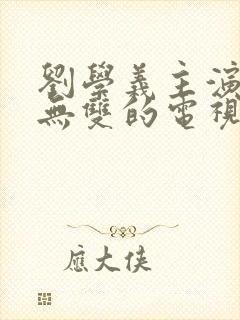 劉學義主演
無雙的電視
應大俠